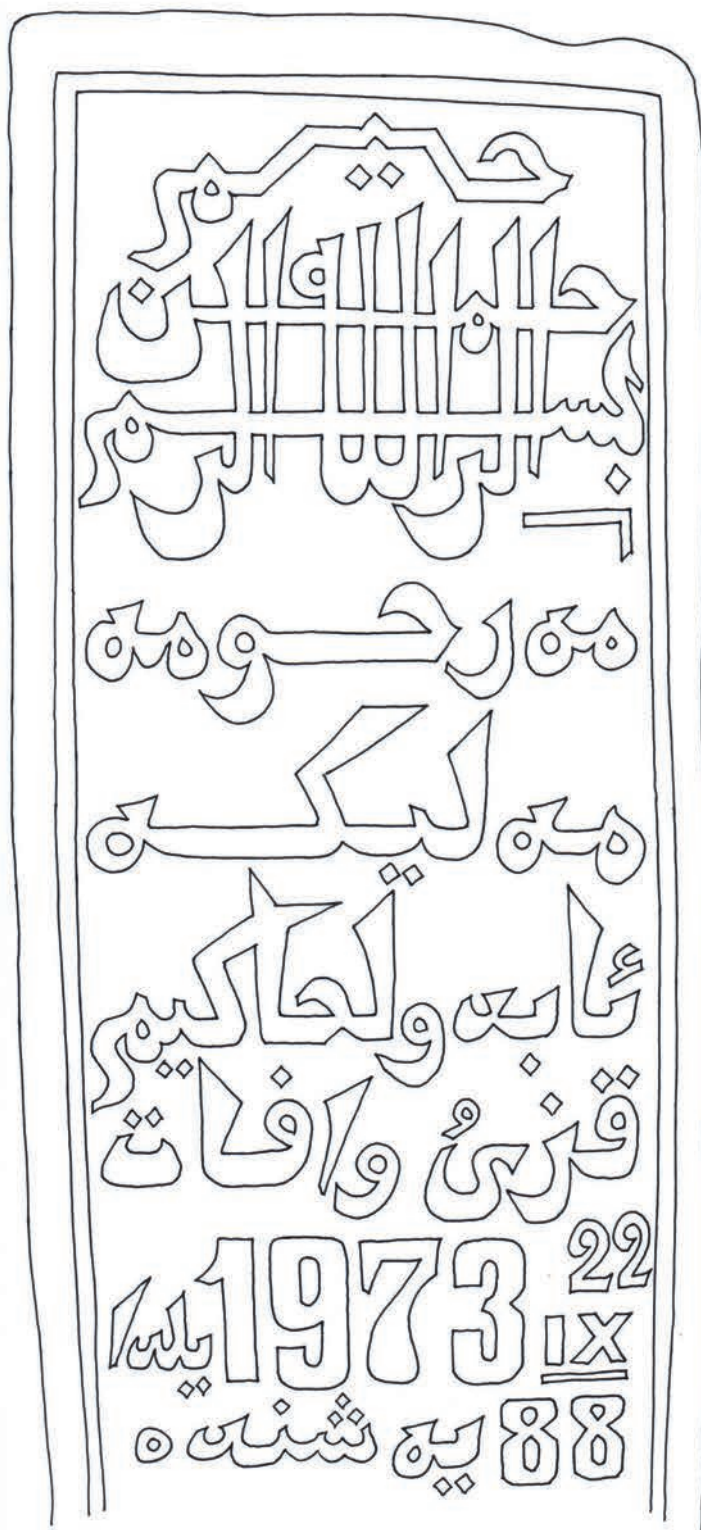 بسم الله الرحمن الرحيم
مه رحومه
مه ليكه
ئابد ولحاكيم
قزىُ وافات
22
IX 1973 يلدا
88 يه شنده